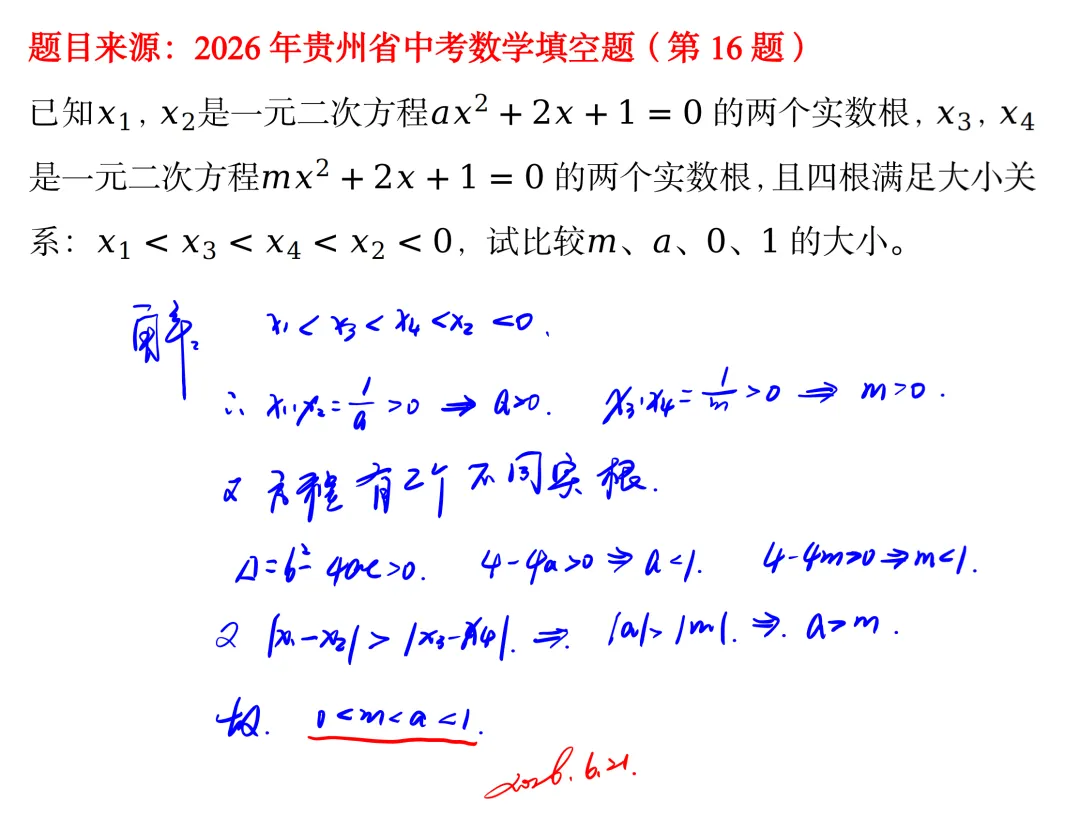 题目来源：2026 年贵州省中考数学填空题（第 16 题）
已知x₁, x₂是一元二次方程ax² + 2x + 1 = 0 的两个实数根, x₃, x₄
是一元二次方程mx² + 2x + 1 = 0 的两个实数根, 且四根满足大小关
系：x₁ < x₃ < x₄ < x₂ < 0, 试比较m、a、0、1 的大小。
解: x₁ < x₃ < x₄ < x₂ < 0.
∴ x₁·x₂ = 1/a > 0 ⇒ a>0. x₃·x₄ = 1/m > 0 ⇒ m>0.
又 方程有2个不同实根.
Δ = b² - 4ac > 0. 4-4a>0 ⇒ a<1. 4-4m>0 ⇒ m<1.
又 |x₁-x₂| > |x₃-x₄|. ⇒. |a| > |m|. ⇒. a>m.
故. 0<m<a<1.
2026.6.21.